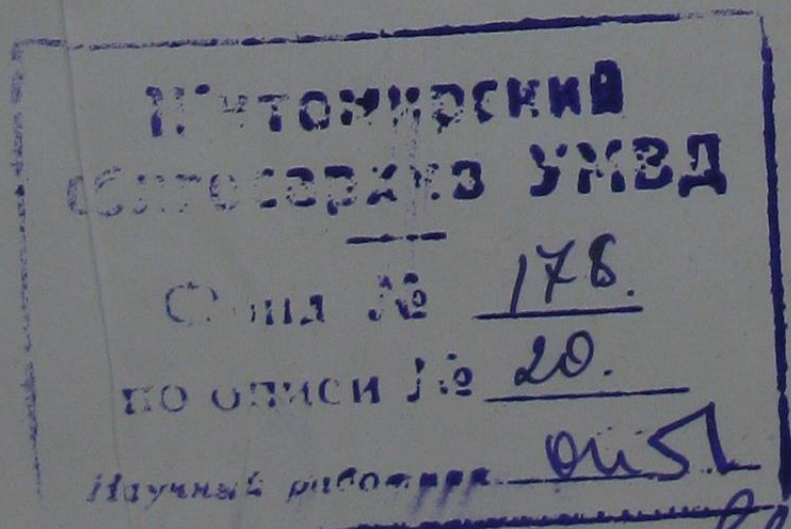 Житомирский
облгосархив УМВД
Фонд № 178.
по описи № 20.
Научный работник